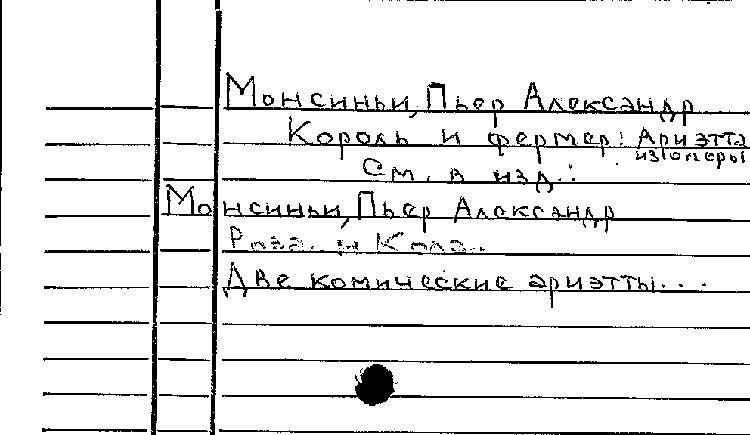 Монсиньи, Пьер Александр
Король и фермер: Ариэтта
из оперы
См. в изд.:
Монсиньи, Пьер Александр
Роза и Кола..
Две комические ариэтты...